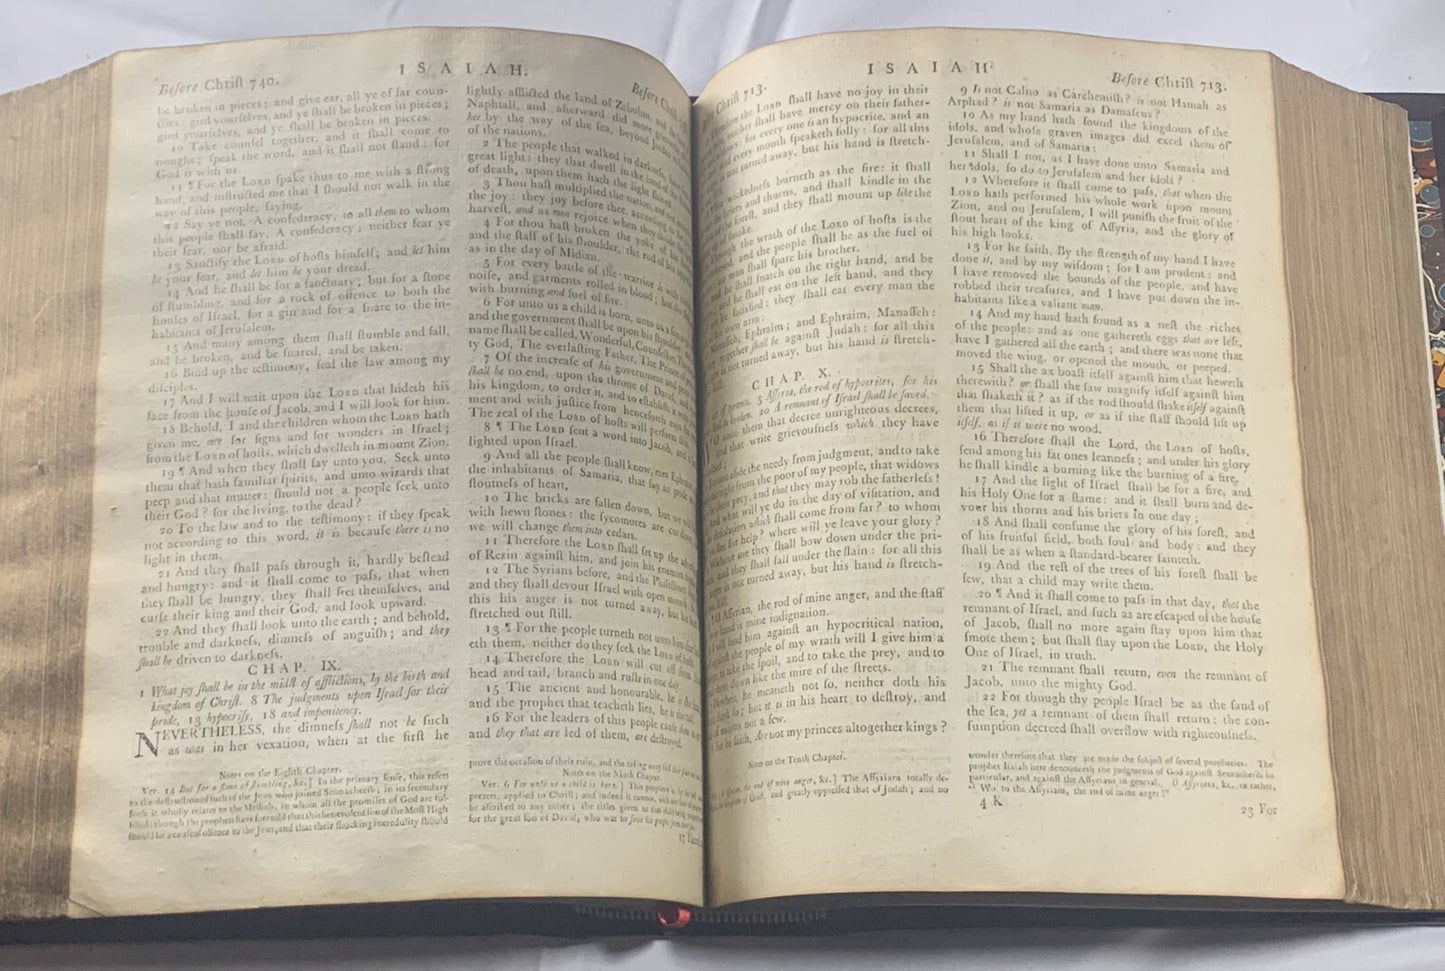 Before Chriſt 740.
ISAIAH.
Before
be broken in pieces; and give ear, all ye of far coun-
tries: gird yourſelves, and ye ſhall be broken in pieces;
gird yourſelves, and ye ſhall be broken in pieces.
10 Take counſel together, and it ſhall come to
nought; ſpeak the word, and it ſhall not ſtand: for
God is with us.
11 ¶ For the LORD ſpake thus to me with a ſtrong
hand, and inſtructed me that I ſhould not walk in the
way of this people, ſaying,
12 Say ye not, A confederacy, to all them to whom
this people ſhall ſay, A confederacy; neither fear ye
their fear, nor be afraid.
13 Sanctify the LORD of hoſts himſelf; and let him
be your fear, and let him be your dread.
14 And he ſhall be for a ſanctuary; but for a ſtone
of ſtumbling, and for a rock of offence to both the
houſes of Iſrael, for a gin and for a ſnare to the in-
habitants of Jeruſalem.
15 And many among them ſhall ſtumble and fall,
and be broken, and be ſnared, and be taken.
16 Bind up the teſtimony, ſeal the law among my
diſciples.
17 And I will wait upon the LORD that hideth his
face from the houſe of Jacob, and I will look for him.
18 Behold, I and the children whom the LORD hath
given me, are for ſigns and for wonders in Iſrael;
from the LORD of hoſts, which dwelleth in mount Zion.
19 ¶ And when they ſhall ſay unto you, Seek unto
them that hath familiar ſpirits, and unto wizards that
peep and that mutter: ſhould not a people ſeek unto
their God? for the living, to the dead?
20 To the law and to the teſtimony: if they ſpeak
not according to this word, it is becauſe there is no
light in them.
21 And they ſhall paſs through it, hardly beſtead
and hungry: and it ſhall come to paſs, that when
they ſhall be hungry, they ſhall fret themſelves, and
curſe their king and their God, and look upward.
22 And they ſhall look unto the earth; and behold,
trouble and darkneſs, dimneſs of anguiſh; and they
ſhall be driven to darkneſs.
CHAP. IX.
1 What joy ſhall be in the midſt of afflictions, by the birth and
kingdom of Chriſt. 8 The judgments upon Iſrael for their
pride, 13 hypocriſy, 18 and impenitency.
NEVERTHELESS, the dimneſs ſhall not be ſuch
as was in her vexation, when at the firſt he
Notes on the Eighth Chapter.
Ver. 14 But for a ſtone of ſtumbling, &c.] In the primary ſenſe, this refers
to the deſtruction of ſuch of the Jews who joined Sennacherib; in its ſecondary
ſenſe it wholly relates to the Meſſiah, in whom all the promiſes of God are ful-
filled: though the prophets have foretold that this benevolent ſon of the Moſt High
ſhould be a cauſe of offence to the Jews, and that their ſhocking incredulity ſhould
lightly afflicted the land of Zebulun, and
Naphtali, and afterward did more
her by the way of the ſea, beyond Jordan
of the nations.
2 The people that walked in darkneſs,
great light: they that dwell in the land of the
of death, upon them hath the light ſhined
3 Thou haſt multiplied the nation, and not
the joy: they joy before thee, according to
harveſt, and as men rejoice when they divide the
4 For thou haſt broken the yoke of his
and the ſtaff of his ſhoulder, the rod of his
as in the day of Midian.
5 For every battle of the warrior is with
noiſe, and garments rolled in blood; but
with burning and fuel of fire.
6 For unto us a child is born, unto us a ſon
and the government ſhall be upon his ſhoulder,
name ſhall be called, Wonderful, Counſellor, The
ty God, The everlaſting Father, The Prince of
7 Of the increaſe of his government and
ſhall be no end, upon the throne of David, and
his kingdom, to order it, and to eſtabliſh it with
ment and with juſtice from henceforth even
The zeal of the LORD of hoſts will perform this.
8 ¶ The LORD ſent a word into Jacob, and it
lighted upon Iſrael.
9 And all the people ſhall know, even Ephraim
the inhabitants of Samaria, that ſay in pride
ſtoutneſs of heart,
10 The bricks are fallen down, but we will
with hewn ſtones: the ſycomores are cut down,
we will change them into cedars.
11 Therefore the LORD ſhall ſet up the
of Rezin againſt him, and join his enemies
12 The Syrians before, and the Philiſtines
and they ſhall devour Iſrael with open mouth.
this his anger is not turned away, but his
ſtretched out ſtill.
13 ¶ For the people turneth not unto him that
eth them, neither do they ſeek the LORD of hoſts.
14 Therefore the LORD will cut off from
head and tail, branch and ruſh in one day.
15 The ancient and honourable, he is the head
and the prophet that teacheth lies, he is the tail.
16 For the leaders of this people cauſe them to
and they that are led of them, are deſtroyed.
prove the occaſion of their ruin, and the
Notes on the Ninth Chapter.
Ver. 6 For unto us a child is born.] This prophecy is, by
preters, applied to Chriſt; and indeed it cannot, with
be aſcribed to any other; the titles given to
for the great ſon of David, who was to ſave his people from
17
Chriſt 713.
ISAIAH.
Before Chriſt 713.
Therefore the LORD ſhall have no joy in their
neither ſhall have mercy on their father-
for every one is an hypocrite, and an
and every mouth ſpeaketh folly: for all this
is not turned away, but his hand is ſtretch-
wickedneſs burneth as the fire: it ſhall
briers and thorns, and ſhall kindle in the
foreſt, and they ſhall mount up like the
of ſmoke.
Through the wrath of the LORD of hoſts is the
and the people ſhall be as the fuel of
no man ſhall ſpare his brother.
And he ſhall ſnatch on the right hand, and be
and he ſhall eat on the left hand, and they
be ſatisfied: they ſhall eat every man the
own arm:
Manaſſeh, Ephraim; and Ephraim, Manaſſeh:
together ſhall be againſt Judah: for all this
is not turned away, but his hand is ſtretch-
CHAP. X.
5 Aſſyria, the rod of hypocrites, for his
ſhall be broken. 20 A remnant of Iſrael ſhall be ſaved.
unto them that decree unrighteous decrees,
and that write grievouſneſs which they have
aſide the needy from judgment, and to take
right from the poor of my people, that widows
their prey, and that they may rob the fatherleſs!
And what will ye do in the day of viſitation, and
deſolation which ſhall come from far? to whom
flee for help? where will ye leave your glory?
Without me they ſhall bow down under the pri-
and they ſhall fall under the ſlain: for all this
anger is not turned away, but his hand is ſtretch-
O Aſſyrian, the rod of mine anger, and the ſtaff
hand is mine indignation.
I will ſend him againſt an hypocritical nation,
againſt the people of my wrath will I give him a
to take the ſpoil, and to take the prey, and to
them down like the mire of the ſtreets.
Howbeit, he meaneth not ſo, neither doth his
think ſo; but it is in his heart to deſtroy, and
nations not a few.
For he ſaith, Are not my princes altogether kings?
Notes on the Tenth Chapter.
the rod of mine anger, &c.] The Aſſyrians totally de-
kingdom of and greatly oppreſſed that of Judah; and no
9 Is not Calno as Carchemiſh? is not Hamah as
Arphad? is not Samaria as Damaſcus?
10 As my hand hath found the kingdoms of the
idols, and whoſe graven images did excel them of
Jeruſalem, and of Samaria:
11 Shall I not, as I have done unto Samaria and
her idols, ſo do to Jeruſalem and her idols?
12 Wherefore it ſhall come to paſs, that when the
LORD hath performed his whole work upon mount
Zion, and on Jeruſalem, I will puniſh the fruit of the
ſtout heart of the king of Aſſyria, and the glory of
his high looks.
13 For he ſaith, By the ſtrength of my hand I have
done it, and by my wiſdom; for I am prudent: and
I have removed the bounds of the people, and have
robbed their treaſures, and I have put down the in-
habitants like a valiant man.
14 And my hand hath found as a neſt the riches
of the people: and as one gathereth eggs that are left,
have I gathered all the earth; and there was none that
moved the wing, or opened the mouth, or peeped.
15 Shall the ax boaſt itſelf againſt him that heweth
therewith? or ſhall the ſaw magnify itſelf againſt him
that ſhaketh it? as if the rod ſhould ſhake itſelf againſt
them that lifted it up, or as if the ſtaff ſhould lift up
itſelf, as if it were no wood.
16 Therefore ſhall the Lord, the LORD of hoſts,
ſend among his fat ones leanneſs; and under his glory
he ſhall kindle a burning like the burning of a fire.
17 And the light of Iſrael ſhall be for a fire, and
his Holy One for a flame: and it ſhall burn and de-
vour his thorns and his briers in one day;
18 And ſhall conſume the glory of his foreſt, and
of his fruitful field, both ſoul and body: and they
ſhall be as when a ſtandard-bearer fainteth.
19 And the reſt of the trees of his foreſt ſhall be
few, that a child may write them.
20 ¶ And it ſhall come to paſs in that day, that the
remnant of Iſrael, and ſuch as are eſcaped of the houſe
of Jacob, ſhall no more again ſtay upon him that
ſmote them; but ſhall ſtay upon the LORD, the Holy
One of Iſrael, in truth.
21 The remnant ſhall return, even the remnant of
Jacob, unto the mighty God.
22 For though thy people Iſrael be as the ſand of
the ſea, yet a remnant of them ſhall return: the con-
ſumption decreed ſhall overflow with righteouſneſs.
wonder therefore that they are made the ſubject of ſeveral prophecies. The
prophet Iſaiah here denounceth the judgments of God againſt Sennacherib in
particular, and againſt the Aſſyrians in general. O Aſſyrians, &c. or rather,
" Wo to the Aſſyrians, the rod of mine anger!"
4 K
23 For